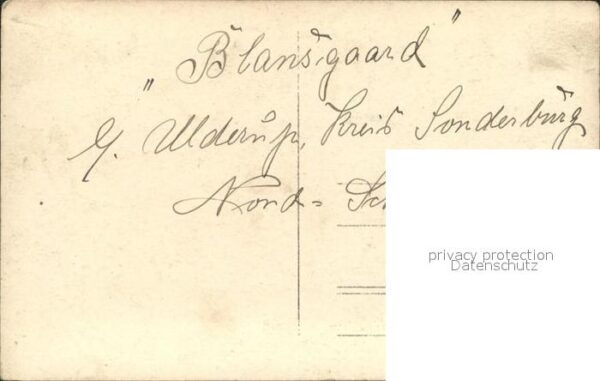 "Blansgaard"
Ulderup, Kreis Sonderburg
Nord=
privacy protection
Datenschutz